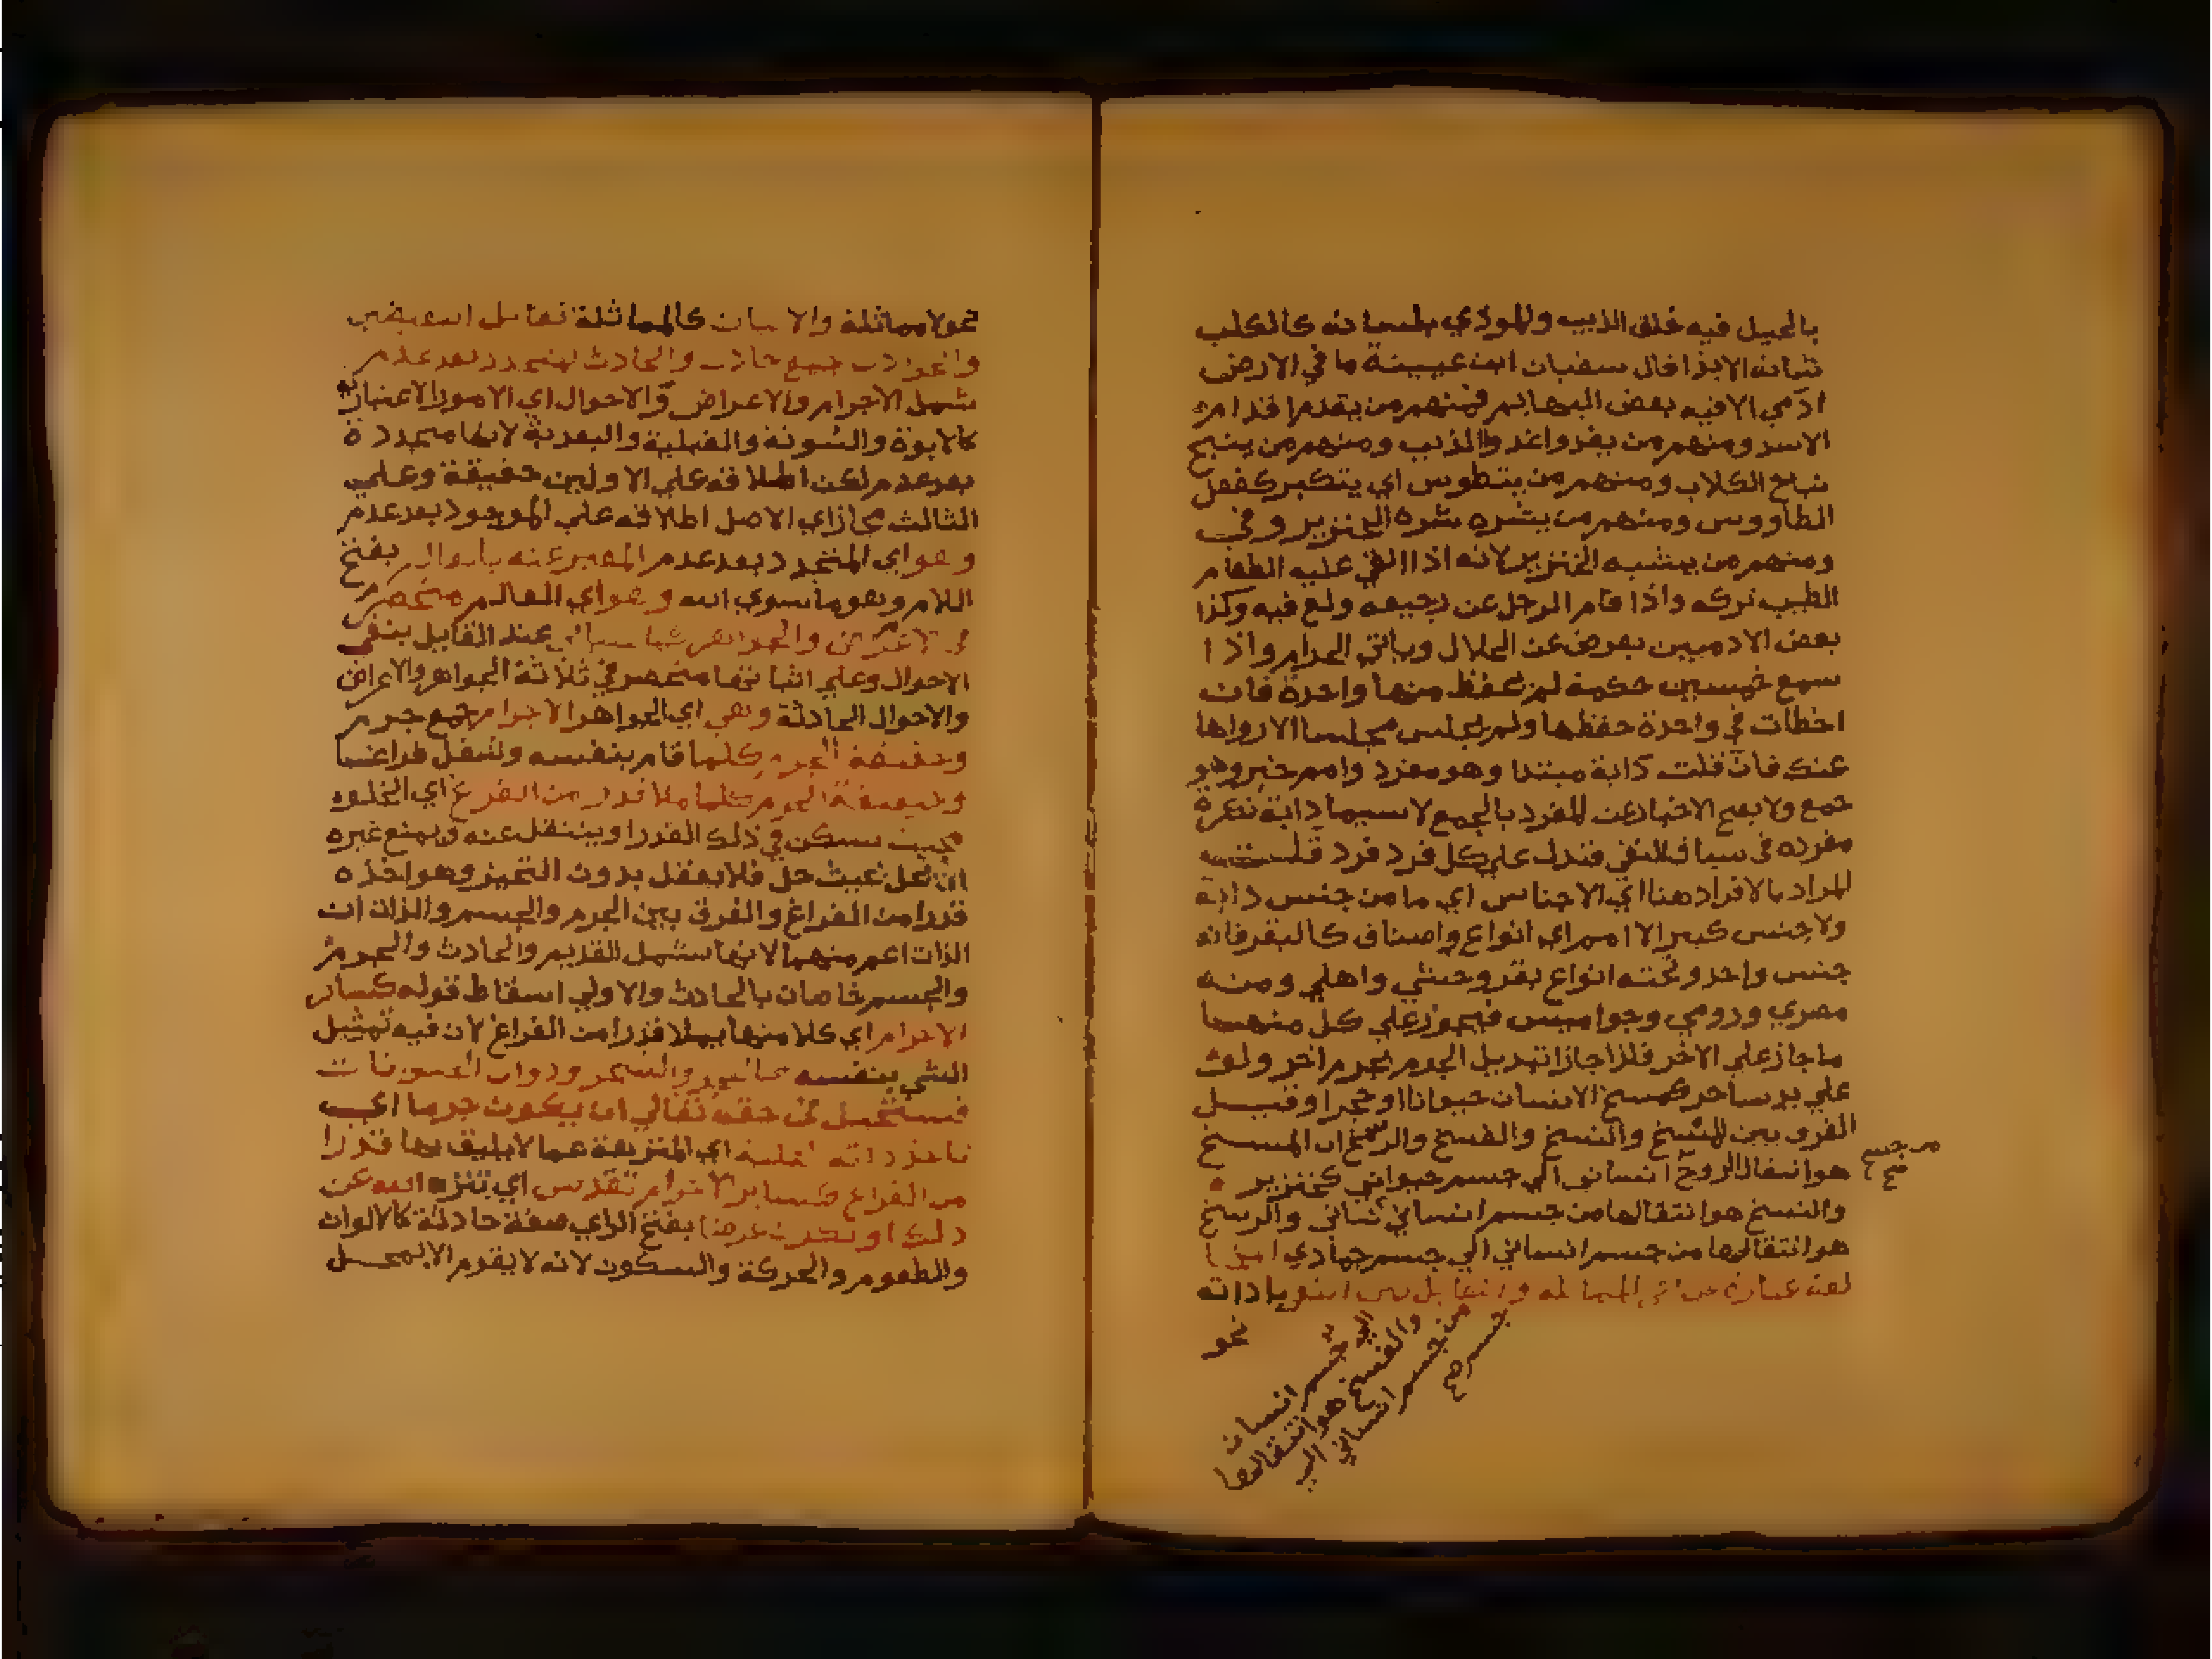 بالحيل فيه خلق الذيب والموذي بلسانه كالكلب
شانه الايذا قال سفيان ابن عيينة ما في الارض
ادمي الا فيه بعض البهايم فمنهم من يقدم اقدام
الاسد ومنهم من يغدوا غدو الذيب ومنهم من ينبح
نباح الكلاب ومنهم من يتطوس اي يتكبر كفعل
الطاووس ومنهم من يشره شره الخنزير وفي
ومنهم من يشبه الخنزير لانه اذا القي عليه الطعام
الطيب تركه واذا قام الرجل عن رجيعه ولغ فيه وكذا
بعض الادميين يعرض عن الحلال وياتي الحرام واذا
سمع خمسين حكمة لم يحفظ منها واحدة فان
اخطات في واحدة حفظها ولم يجلس مجلسا الا رواها
عنك فان قلت دابة مبتدا وهو مفرد وامم خبر وهو
جمع ولا يصح الاخبار عن المفرد بالجمع لا سيما دابة نكرة
مفرده في سياق النفي فتدل علي كل فرد فرد قلت
المراد بالافراد هنا اي الاجناس اي ما من جنس دابة
ولا جنس كبير الا امم اي انواع واصناف كالبقر فانه
جنس واحد وتحته انواع بقر وحشي واهلي ومنه
مصري ورومي وجواميس فيجوز علي كل منهما
ما جاز علي الاخر فلذا جاز تبديل الجرم بجرم اخر ولو
علي يد ساحر كمسخ الانسان حيوانا او حجرا وقيل
الفرق بين المسخ والنسخ والفسخ والرسخ ان المسخ
هو انتقال الروح انساني الي جسم حيواني كخنزير
من جسم صح
والنسخ هو انتقالها من جسم انساني والرسخ
هو انتقالها من جسم انساني الي جسم جمادي
لغة عبارة عن المماثلة باداته
نحو
الي جسم انسان
والفسخ هو انتقالها
من جسم انساني الي
جسم صح
نحو لا مماثلة والاسان كالمماثلة
جمع حادث والحادث المتجدد بعد عدم
شمل الاجرام والاعراض والاحوال اي الامور الاعتبارية
كالابوة والبنونة والقبلية والبعدية لانها متجددة
بعد عدم لكن اطلاقه علي الاولين حقيقة وعلي
الثالث مجاز اي الاصل اطلاقه علي الموجود بعد عدم
وهو اي المتجدد بعد عدم المعبر عنه بالعالم بفتح
اللام وهو ما سوي الله وهو اي العالم منحصر
في الاعراض والجواهر عند القايل بنفي
الاحوال وعلي اثباتها منحصر في ثلاثة الجواهر والاعراض
والاحوال الحادثة وهي اي الجواهر الاجرام جمع جرم
وحقيقة الجرم كلما قام بنفسه وشغل فراغا
وحقيقة الجرم كلما ملا قدرا من الفراغ اي الخلو
بحيث يسكن في ذلك القدر او ينتقل عنه ويمنع غيره
ان يحل حيث حل فلا يعقل بدون التحيز وهو اخذه
قدرا من الفراغ والفرق بين الجرم والجسم والذات ان
الذات اعم منهما لانها تشمل القديم والحادث والجرم
والجسم خاصان بالحادث والاولي اسقاط قوله كساير
الاجرام اي كلا منها يملا قدرا من الفراغ لان فيه تمثيل
الشي بنفسه كالحجر والشجر
فيستحيل في حقه تعالي ان يكون جرما اي
تاخذ ذاته العلية اي المنزهة عما لا يليق بها قدرا
من الفراغ كساير الاجرام تقدس اي تنزه الله عن
ذلك او يكون عرضا بفتح الراي صفة حادثة كالالوان
والطعوم والحركة والسكون لانه لا يقوم الا بمحل